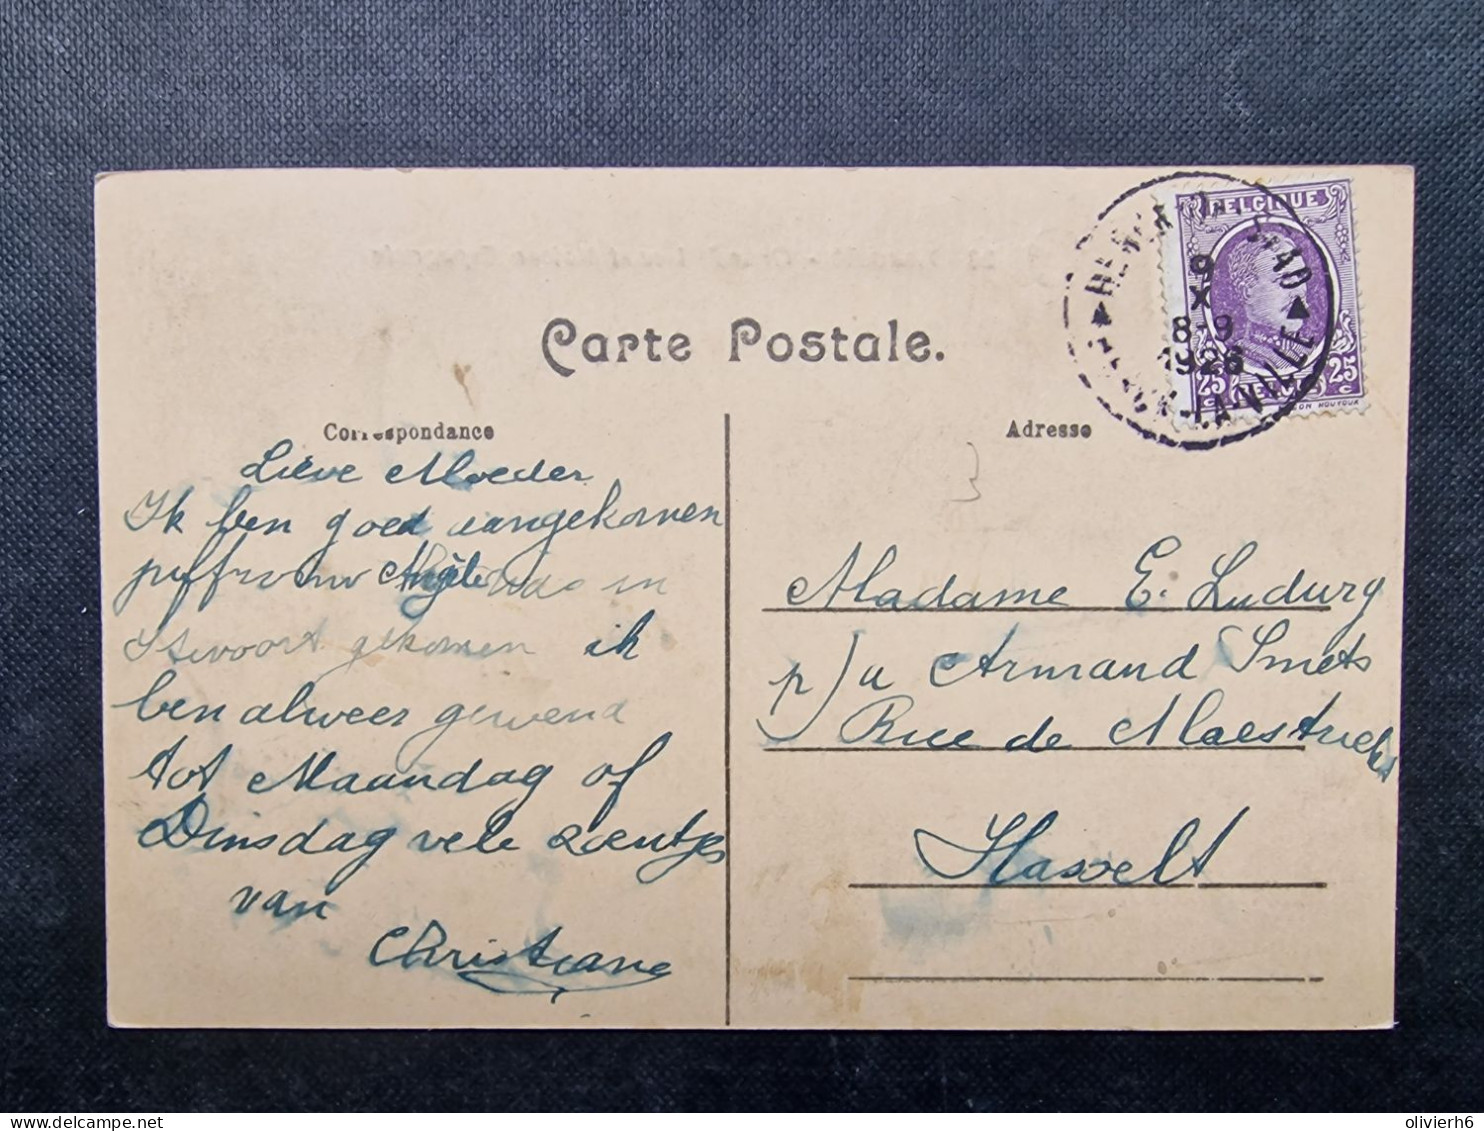 BELGIQUE
9
X
8-9
1926
STAD
LA-VILLE
25 25
BELGIË
Carte Postale.
Correspondance
Lieve Moeder
Ik ben goed aangekomen
juffrouw Angèle was in
Stevoort gekomen ik
ben alweer gewend
tot Maandag of
Dinsdag vele zoentjes
van
Christiane
Adresse
Madame E. Ludwig
p/a Armand Smets
Rue de Maestricht
Hasselt
olivierh6